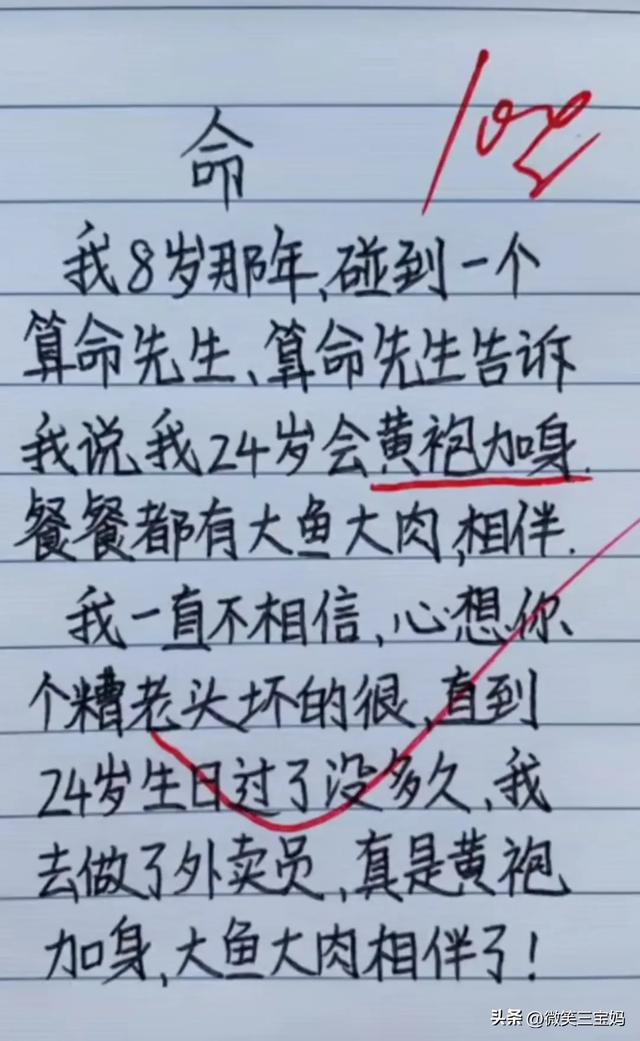 100
命
我8岁那年,碰到一个
算命先生、算命先生告诉
我说我24岁会黄袍加身.
餐餐都有大鱼大肉,相伴.
我一直不相信,心想你、
个糟老头坏的很,直到
24岁生日过了没多久,我
去做了外卖员,真是黄袍
加身,大鱼大肉相伴了!
头条 @微笑三宝妈